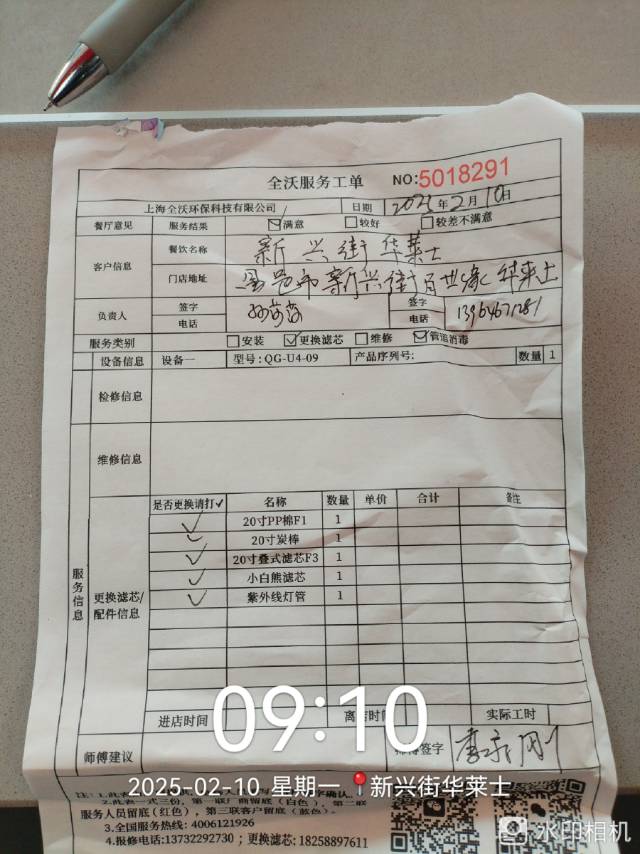 全沃服务工单 NO:5018291
上海全沃环保科技有限公司 日期 2025年2月10日
餐厅意见 服务结果 ☑满意 □较好 □较差不满意
客户信息 餐饮名称 新兴街华莱士
门店地址 新兴街百世缘华莱士
负责人 签字 签字
电话 电话
服务类别 □安装 ☑更换滤芯 □维修 ☑管道消毒
设备信息 设备一 型号:QG-U4-09 产品序列号: 数量 1
检修信息
维修信息
服务信息
更换滤芯/配件信息
是否更换请打✓ 名称 数量 单价 合计 备注
✓ 20寸PP棉F1 1
✓ 20寸炭棒 1
✓ 20寸叠式滤芯F3 1
✓ 小白熊滤芯 1
✓ 紫外线灯管 1
进店时间 离店时间 实际工时
师傅建议 师傅签字
09:10
2025-02-10 星期一 新兴街华莱士
2.此表一式三份,第一联厂商留底(白色)、第二联
服务人员留底(红色),第三联客户留底(蓝色)。
3.全国服务热线:4006121926
4.报修电话:13732292730;更换滤芯:18258897611
水印相机